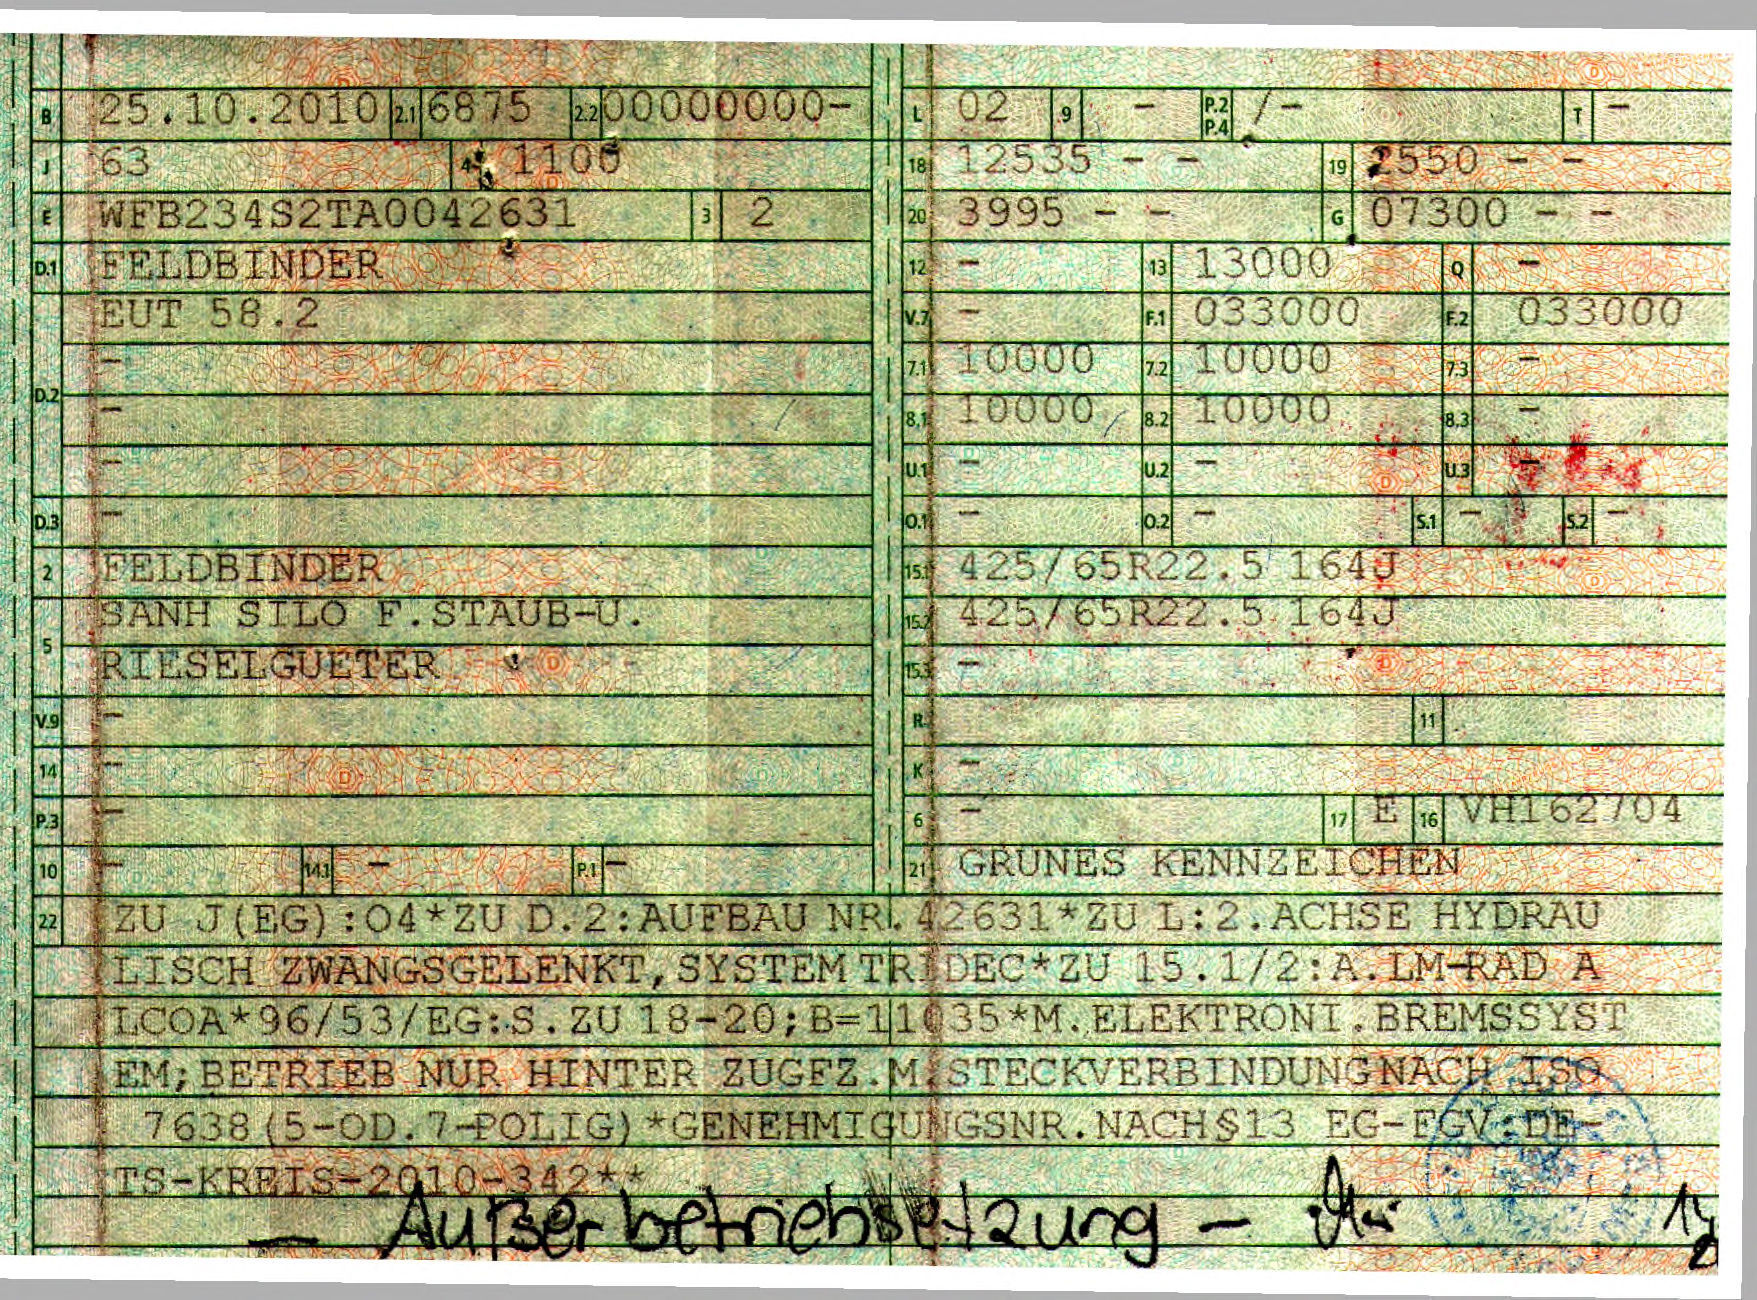 B 25.10.2010 2.1 6875 2.2 00000000-
J 63 4 1100
E WFB234S2TA0042631 3 2
D.1 FELDBINDER
EUT 58.2
-
D.2 -
-
D.3 -
2 FELDBINDER
5 SANH SILO F.STAUB-U.
RIESELGUETER
V.9 -
14 -
P.3 -
10 - 14.1 - P.1 -
L 02 9 - P.2 P.4 /- T -
18 12535 - - 19 2550 - -
20 3995 - - G 07300 - -
12 - 13 13000 Q -
V.7 - F.1 033000 F.2 033000
7.1 10000 7.2 10000 7.3 -
8.1 10000 8.2 10000 8.3 -
U.1 - U.2 - U.3 -
O.1 - O.2 - S.1 - S.2 -
15.1 425/65R22.5 164J
15.2 425/65R22.5 164J
15.3 -
R 11
K -
6 - 17 E 16 VH162704
21 GRUNES KENNZEICHEN
22 ZU J(EG):04*ZU D.2:AUFBAU NR.42631*ZU L:2.ACHSE HYDRAU
LISCH ZWANGSGELENKT,SYSTEM TRIDEC*ZU 15.1/2:A.LM-RAD A
LCOA*96/53/EG:S.ZU 18-20;B=11035*M.ELEKTRONI.BREMSSYST
EM;BETRIEB NUR HINTER ZUGFZ.M.STECKVERBINDUNG NACH ISO
7638(5-OD.7-POLIG)*GENEHMIGUNGSNR.NACH§13 EG-FGV:DE-
TS-KREIS-2010-342**
- Außerbetriebsetzung -